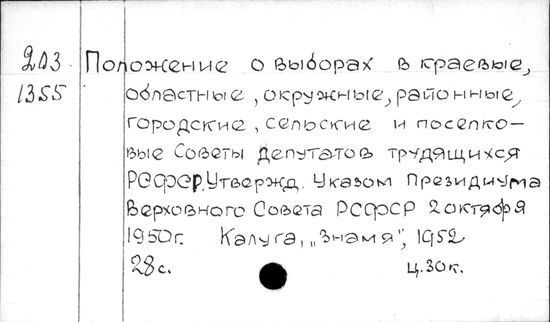 2Д3 Положение о выборах в краевые,
1355 областные, окружные, районные,
городские, сельские и поселко-
вые Советы депутатов трудящихся
РСФСР. Утвержд. Указом Президиума
Верховного Совета РСФСР 2 октября
1950г. Калуга, „Знамя", 1952
28с. ц.30к.